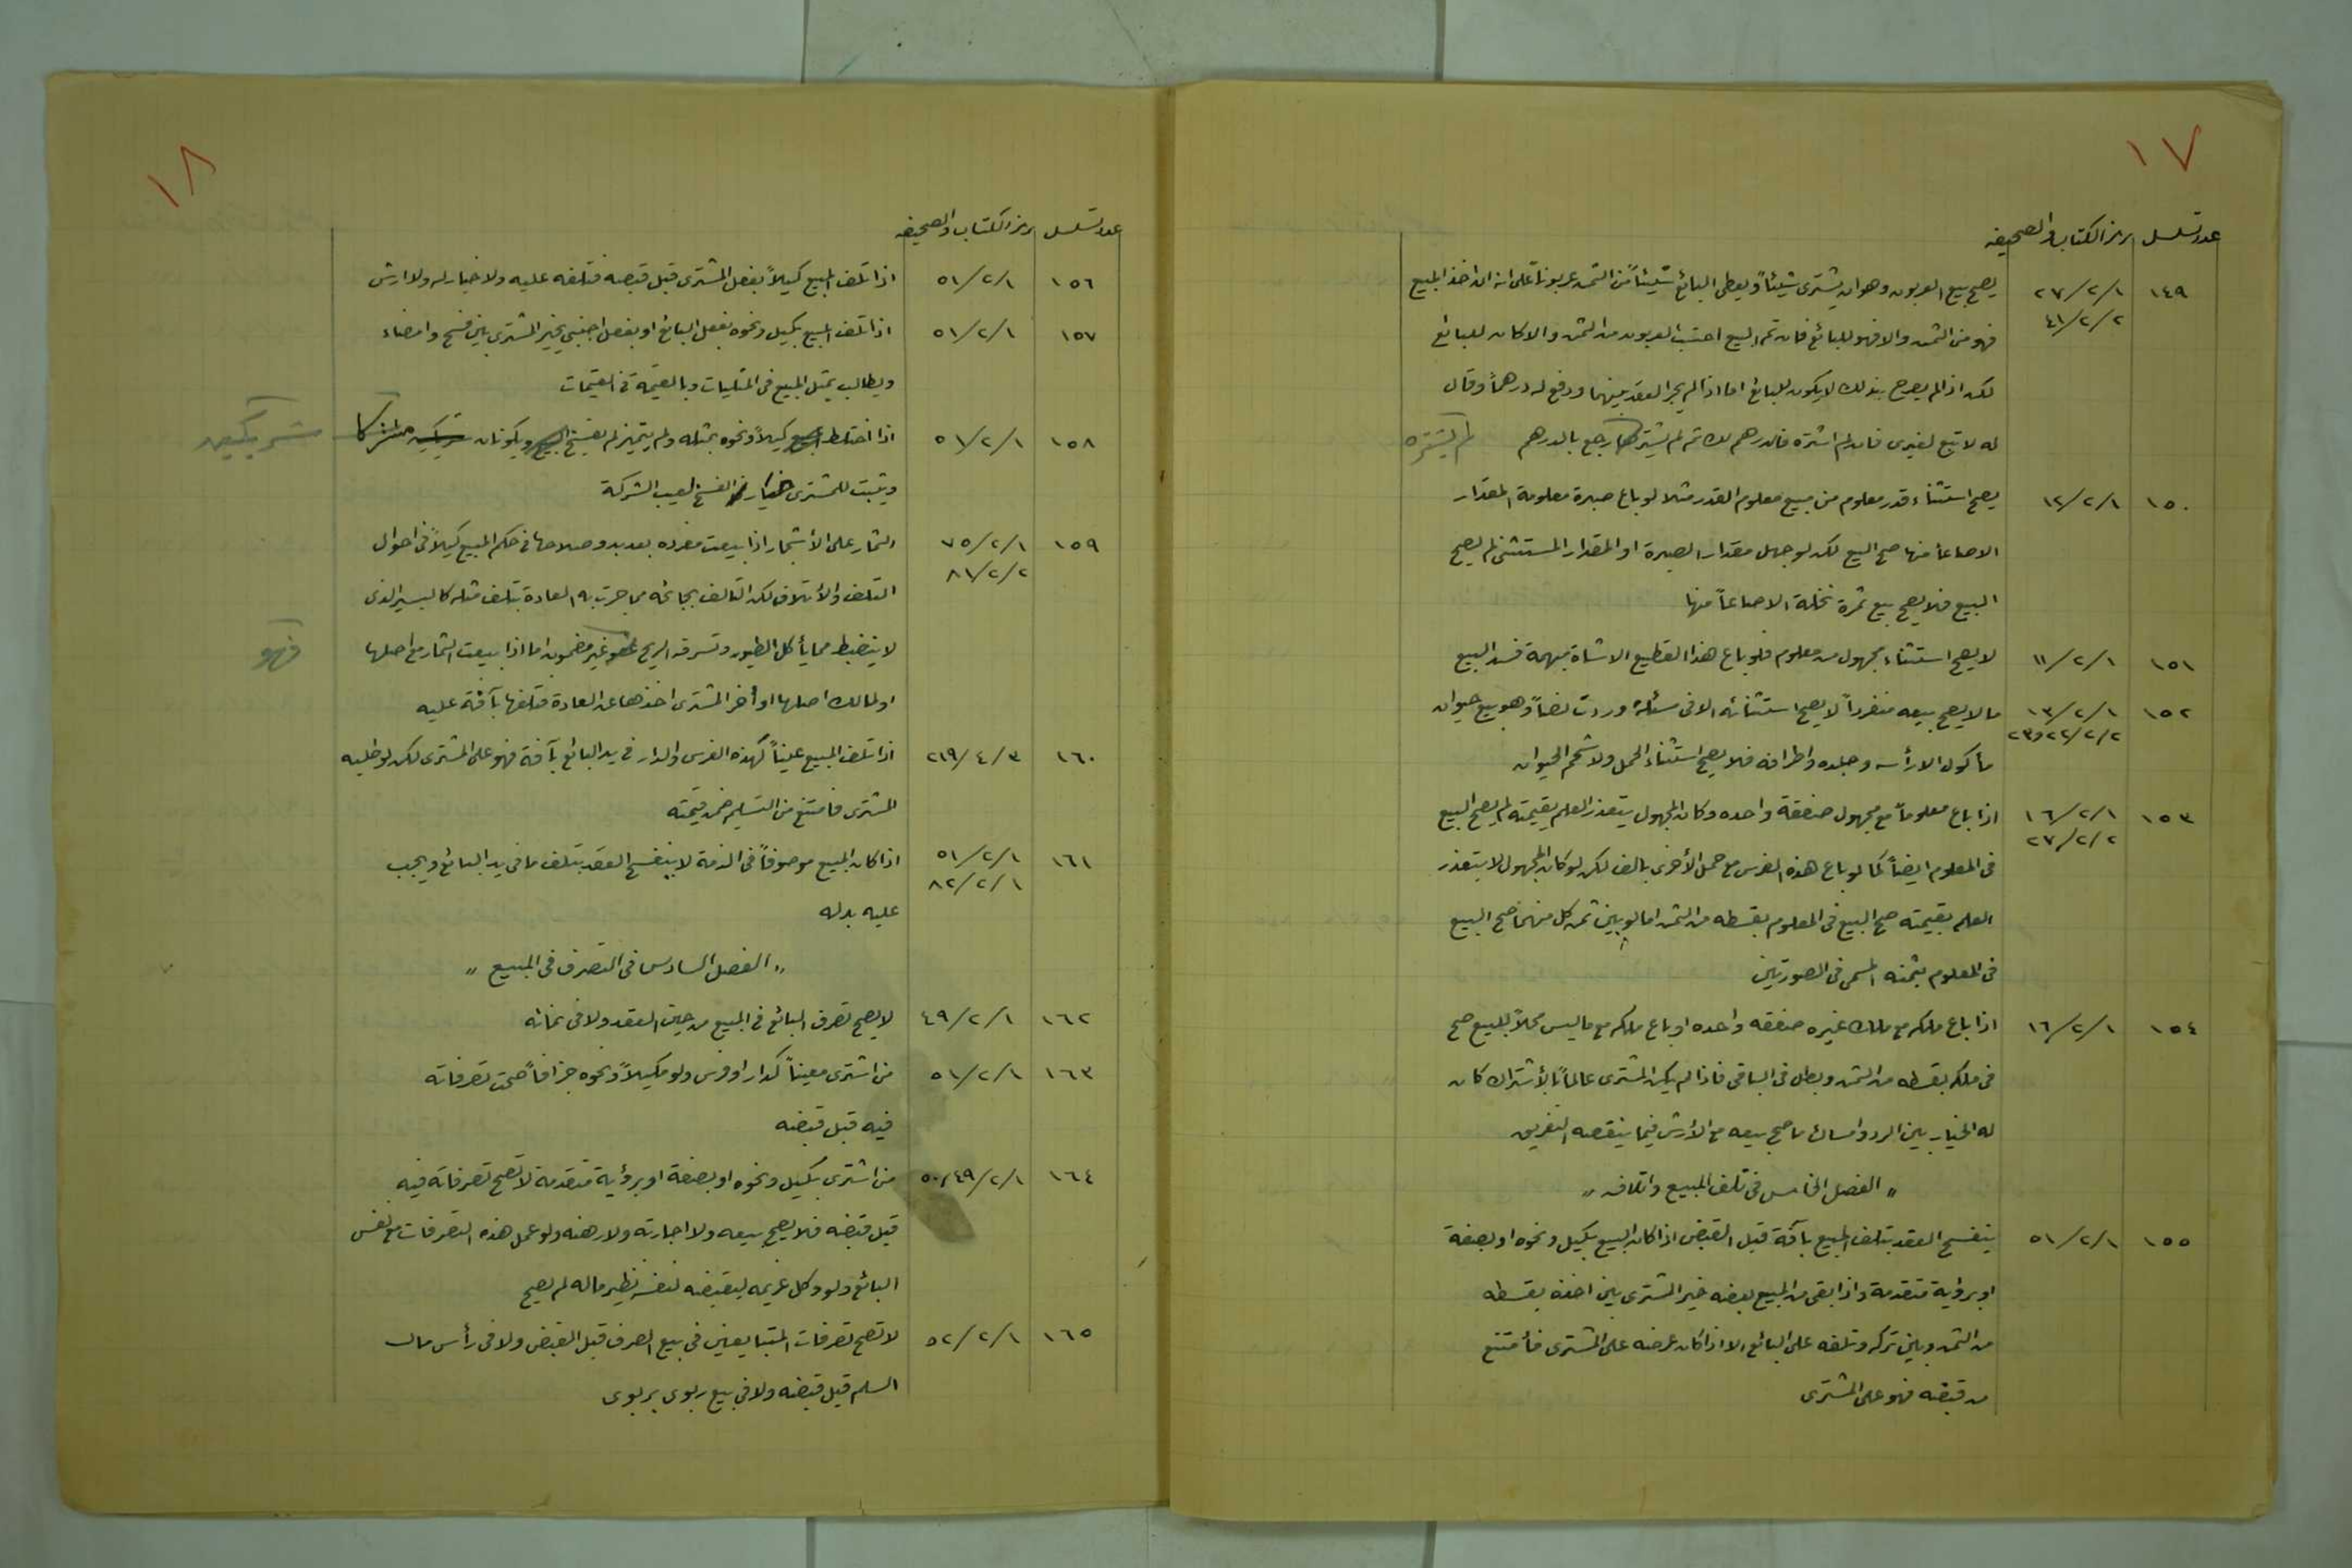 ١٧
عدد تسلسل رمز الكتاب والصحيفه
١٤٩ ٢٧/٢/١ يصح بيع العربون وهو ان يشترى شيئاً ويعطى البائع شيئاً من الثمن عربوناً على انه ان اخذ المبيع
٤١/٢/٢ فهو من الثمن والا فهو للبائع فان تم البيع احتسب العربون من الثمن والا كان للبائع
لكن اذا لم يصرح بذلك لا يكون للبائع اما اذا لم يجر العقد بينهما ودفع له درهماً وقال
له لا تبع لغيرى فان لم اشتره فالدرهم لك ثم لم يشتر رجع بالدرهم لم يشتره
١٥٠ ١٢/٢/١ يصح استثناء قدر معلوم من مبيع معلوم القدر مثلا لو باع صبرة معلومة المقدار
الا صاعاً منها صح البيع لكن لو جهل مقدار الصبرة او المقدار المستثنى لم يصح
البيع فلا يصح بيع ثمرة نخلة الا صاعاً منها
١٥١ ١١/٢/١ لا يصح استثناء مجهول من معلوم فلو باع هذا القطيع الا شاة مبهمة فسد البيع
١٥٢ ١٣/٢/١ ما لا يصح بيعه منفرداً لا يصح استثنائه الا فى مسئلة وردت نصاً وهو بيع حيوان
٢٢/٢/٢ و٢٣ مأكول الا رأسه وجلده واطرافه فلا يصح استثناء الحمل ولا شحم الحيوان
١٥٣ ١٦/٢/١ اذا باع معلوماً مع مجهول صفقة واحده وكان المجهول يتعذر العلم بقيمته لم يصح البيع
٢٧/٢/٢ فى المعلوم ايضاً كما لو باع هذه الفرس مع حمل الأخرى بالف لكن لو كان المجهول لا يتعذر
العلم بقيمته صح البيع فى المعلوم بقسطه من الثمن اما لو بين ثمن كل منهما صح البيع
فى المعلوم بثمنه المسمى فى الصورتين
١٥٤ ١٦/٢/١ اذا باع ملكه مع ملك غيره صفقه واحده او باع ملكه مع ما ليس محلاً للبيع صح
فى ملكه بقسطه من الثمن وبطل فى الباقى فاذا لم يكن المشترى عالماً بالأشتراك كان
له الخيار بين الرد وامساك ما صح بيعه مع الأرش فيما ينقصه التفريق
" الفصل الخامس فى تلف المبيع واتلافه "
١٥٥ ٥١/٢/١ ينفسخ العقد بتلف المبيع بآفة قبل القبض اذا كان البيع بكيل ونحوه او بصفة
او برؤية متقدمة واذا بقى من المبيع بعضه خير المشترى بين اخذه بقسطه
من الثمن وبين تركه وتلفه على البائع الا اذا كان عرضه على المشترى فأمتنع
من قبضه فهو على المشترى
١٨
عدد تسلسل رمز الكتاب والصحيفه
١٥٦ ٥١/٢/١ اذا تلف المبيع كيلاً بفعل المشترى قبل قبضه فتلفه عليه ولا خيار له ولا ارش
١٥٧ ٥١/٢/١ اذا تلف المبيع بكيل ونحوه بفعل البائع او بفعل اجنبى يخير المشترى بين فسخ وامضاء
ويطالب بمثل المبيع فى المثليات وبالقيمة فى القيمات
١٥٨ ٥١/٢/١ اذا اختلط المبيع كيلاً ونحوه بمثله ولم يتميز لم يفسخ البيع ويكونان شريكين
ويثبت للمشترى خيار الفسخ لعيب الشركة
١٥٩ ٧٥/٢/١ الثمار على الأشجار اذا بيعت مفرده بعد بدو صلاحها فى حكم المبيع كيلاً فى احوال
٨١/٢/٢ التلف والأتلاف لكن التالف بجائحه مما جرت به العادة بتلف مثله كاليسير الذى
لا ينضبط مما يأكل الطيور وتسرقه الريح فهو غير مضمون اما اذا بيعت الثمار مع اصلها
او لمالك اصلها او أخر المشترى اخذها عن العادة فتلفها بآفة عليه
١٦٠ ٢١٩/٤/٣ اذا تلف المبيع عيناً كهذه الفرس والدار فى يد البائع بآفة فهو على المشترى لكن لو طلبه
المشترى فامتنع من التسليم ضمن قيمته
١٦١ ٥١/٢/١ اذا كان المبيع موصوفاً فى الذمة لا ينفسخ العقد بتلف ما فى يد البائع ويجب
٨٢/٢/١ عليه بدله
" الفصل السادس فى التصرف فى المبيع "
١٦٢ ٤٩/٢/١ لا يصح تصرف البائع فى المبيع من حين العقد ولا فى نمائه
١٦٣ ٥١/٢/١ من اشترى معيناً كدار او فرس ولو مكيلاً ونحوه جزافاً صحت تصرفاته
فيه قبل قبضه
١٦٤ ٥٠،٤٩/٢/١ من اشترى بكيل ونحوه او بصفة او برؤية متقدمة لا تصح تصرفاته فيه
قبل قبضه فلا يصح بيعه ولا اجارته ولا رهنه ولو عمل هذه التصرفات مع نفس
البائع ولو وكل غريمه ليقبضه لنفسه نظير ماله لم يصح
١٦٥ ٥٢/٢/١ لا تصح تصرفات المتبايعين فى بيع الصرف قبل القبض ولا فى رأس مال
السلم قبل قبضه ولا فى بيع ربوى بربوى
شريكين
فهو